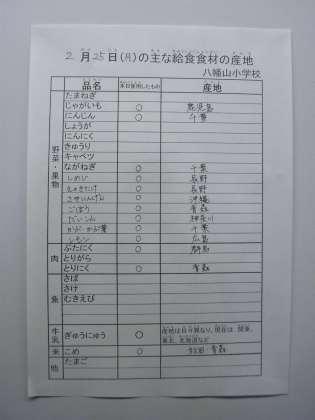 2月25日(月)の主な給食食材の産地
八幡山小学校
品名 本日使用したもの 産地
野菜・果物
たまねぎ
じゃがいも ○ 鹿児島
にんじん ○ 千葉
しょうが
にんにく
きゅうり
キャベツ
ながねぎ ○ 千葉
しめじ ○ 長野
えのきたけ ○ 長野
さやいんげん ○ 沖縄
ごぼう ○ 青森
だいこん ○ 神奈川
かぶ・かぶ葉 ○ 千葉
レモン ○ 広島
肉
ぶたにく ○ 群馬
とりがら
とりにく ○ 青森
魚
さば
さけ
むきえび
牛乳 ぎゅうにゅう ○ 産地は日々異なり、現在は、関東、東北、北海道など
米 こめ ○ 秋田 青森
他 たまご